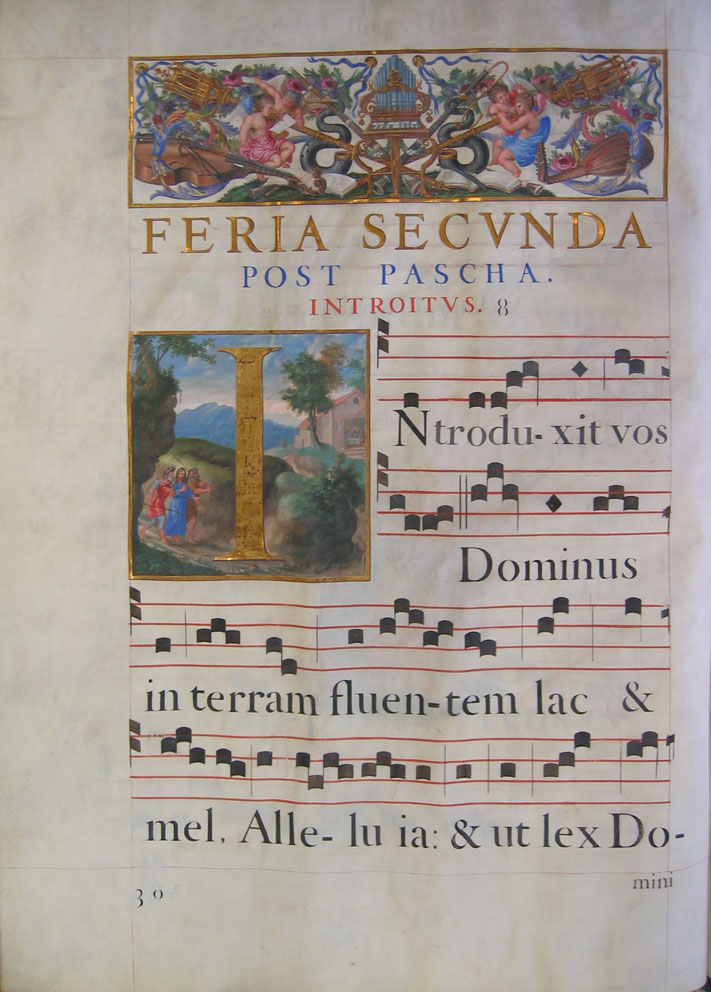 FERIA SECVNDA
POST PASCHA.
INTROITVS. 8
INtrodu-xit vos
Dominus
in terram fluen-tem lac &
mel, Alle- lu ia: & ut lex Do-
mini
30